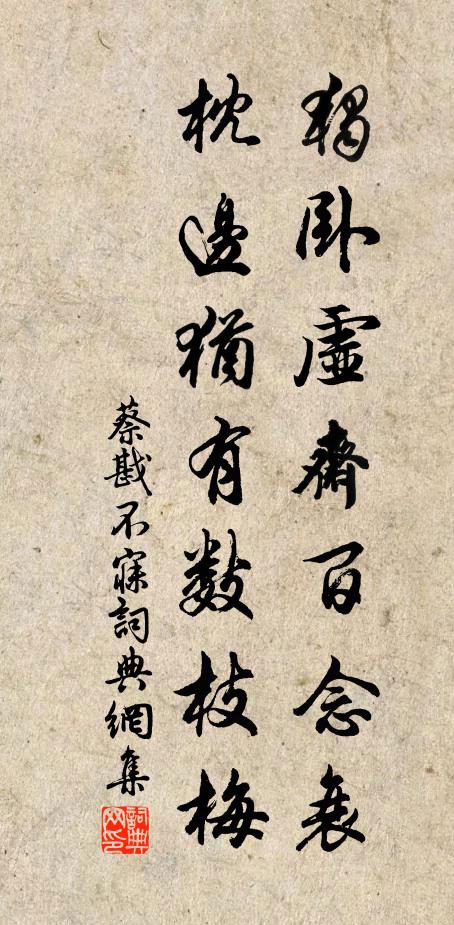 獨卧虛齋百念衰
枕邊猶有數枝梅
蔡戡不寐詞典網集
詞典
网印